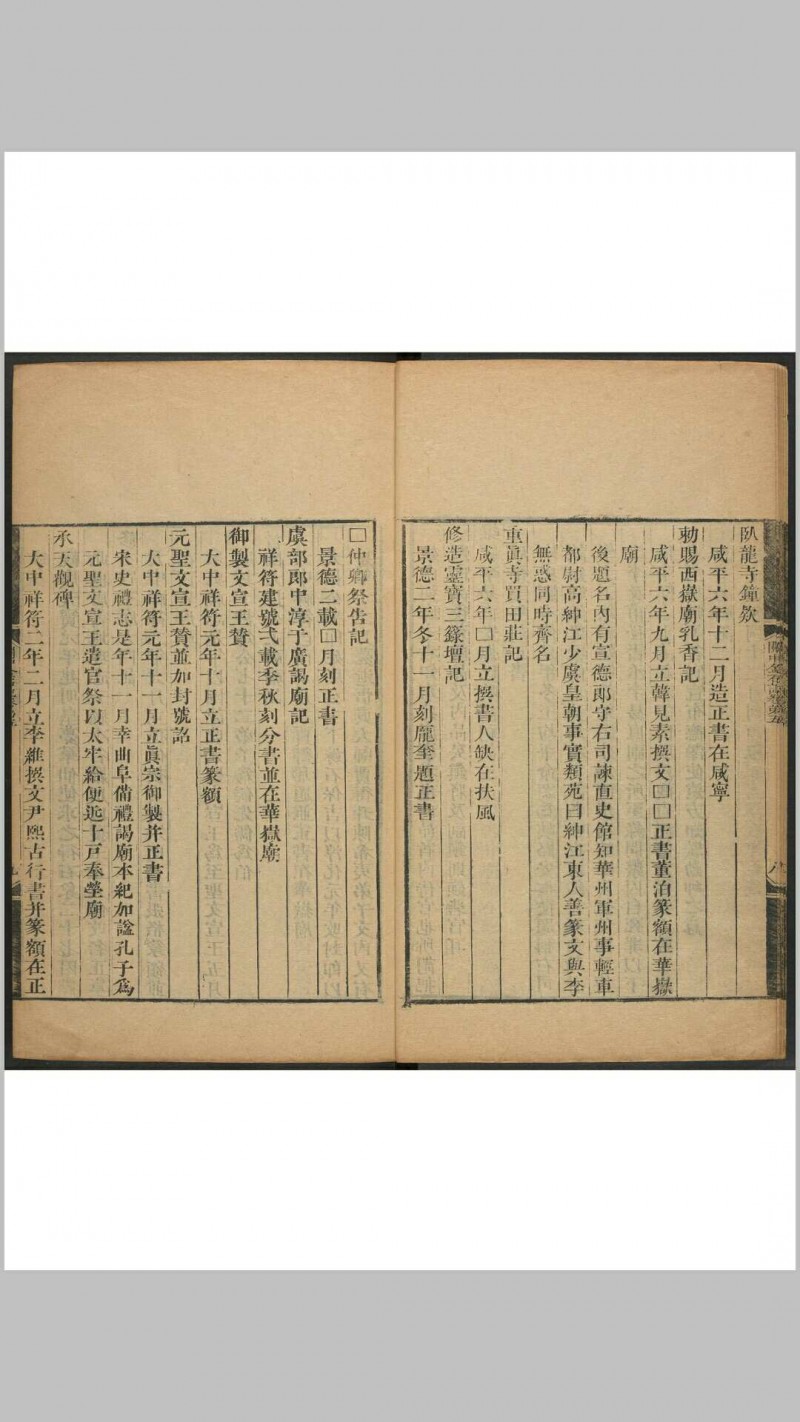 臥龍寺鐘欵
咸平六年十二月造正書在咸寧
勅賜西嶽廟乳香記
咸平六年九月立韓見素撰文囗囗正書董洎篆額在華嶽
廟
後題名內有宣德郎守右司諫直史館知華州軍州事輕車
都尉高紳江少虞皇朝事實類苑曰紳江東人善篆文與李
無惑同時齊名
重眞寺買田莊記
咸平六年囗月立撰書人缺在扶風
修造靈寶三籙壇記
景德二年冬十一月刻龎奎題正書
八
囗仲卿祭告記
景德二載囗月刻正書
虞部郎中淳于廣謁廟記
祥符建號弍載季秋刻分書並在華嶽廟
御製文宣王贊
大中祥符元年十月立正書篆額
元聖文宣王贊並加封號詔
大中祥符元年十一月立眞宗御製并正書
宋史禮志是年十一月幸曲阜備禮謁廟本紀加謚孔子爲
元聖文宣王遣官祭以太牢給便近十戸奉塋廟
承天觀碑
大中祥符二年二月立李維撰文尹熙古行書并篆額在正